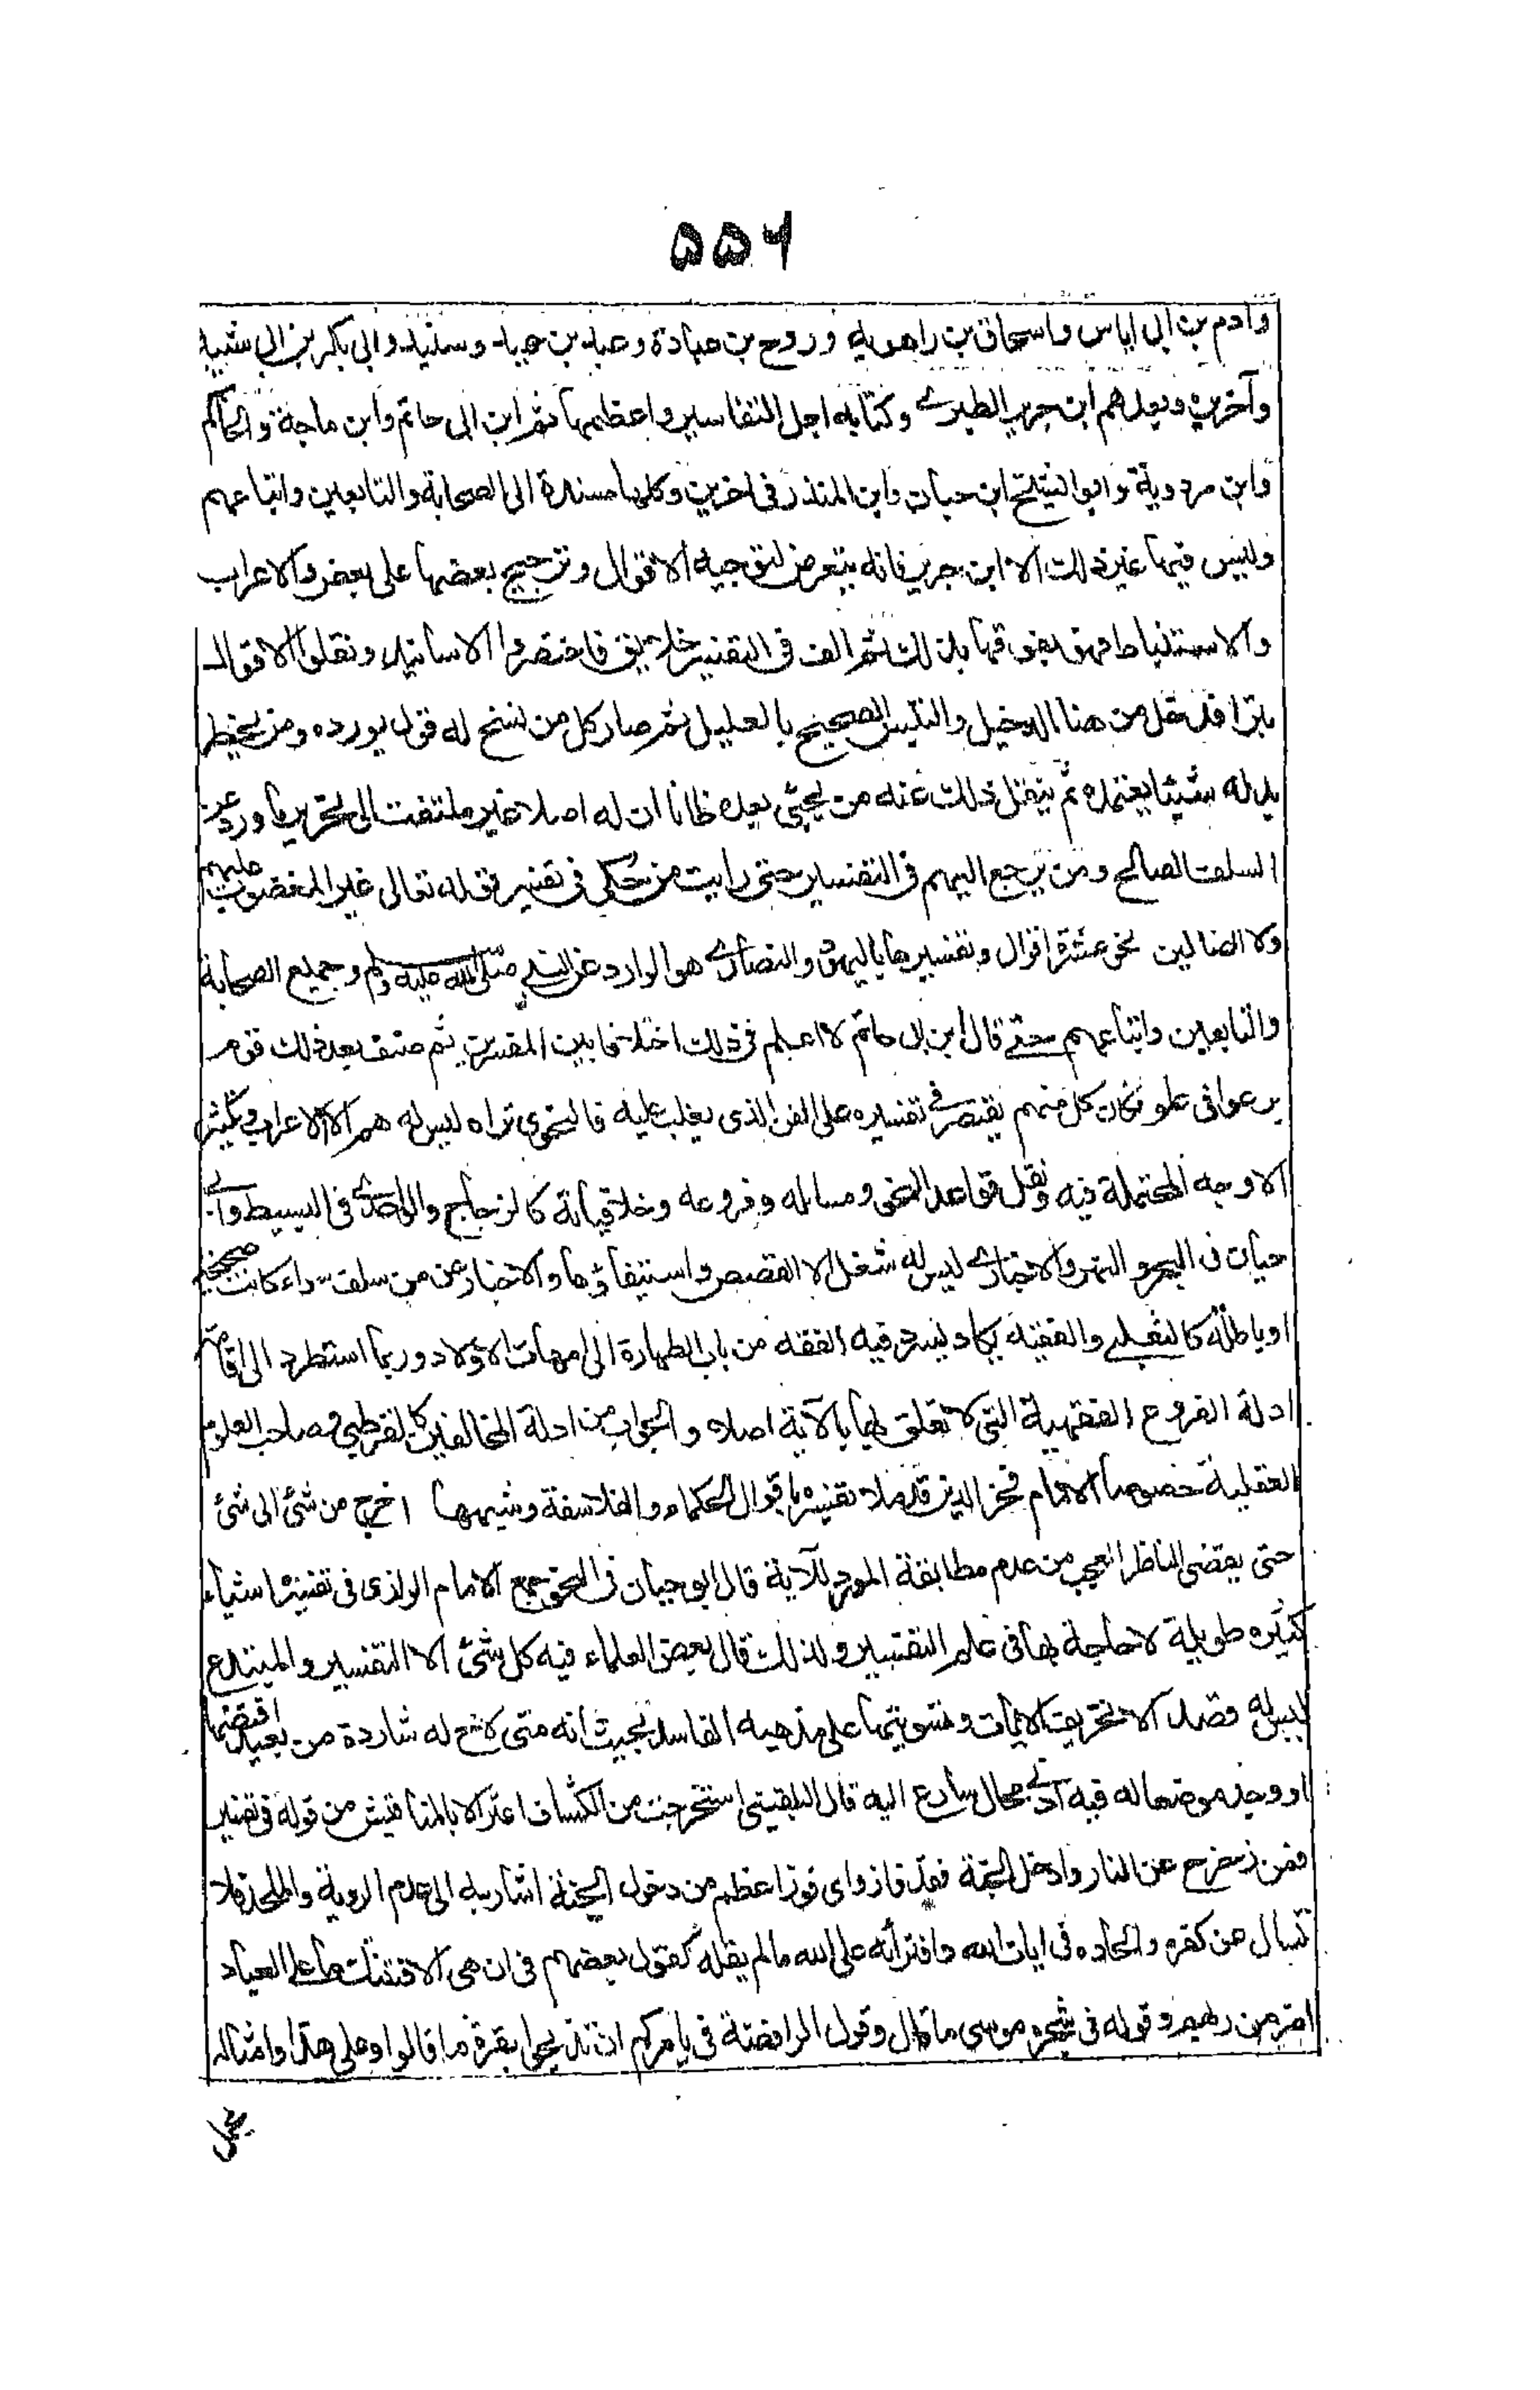 ٥٥٦
وآدم بن ابی ایاس واسحاق بن راهویه وروح بن عبادة وعبد بن حمید وسنید وابی بکر بن ابی شیبه
وآخرین وبعدهم ابن جریر الطبرے وکتابه اجل التفاسیر واعظمها ثم ابن ابی حاتم وابن ماجة والحاکم
وابن مردویة وابو الشیخ ابن حبان وابن المنذر فی اخرین وکلها مسندة الی الصحابة والتابعین واتباعهم
ولیس فیها غیر ذلک الا ابن جریر فانه یتعرض لتوجیه الاقوال وترجیح بعضها علی بعض والاعراب
والاستنباط فهو یفوقها بذلک ثم الف فی التفسیر خلائق فاختصروا الاسانید ونقلوا الاقوال
بترا فدخل من هنا الدخیل والتبس الصحیح بالعلیل ثم صار کل من نسخ له قول یورده ومن یخطر
بباله شیئا یعتمده ثم ینقل ذلک عنه من یجیئ بعده ظانا ان له اصلا غیر ملتفت الی تحریر ما ورد عن
السلف الصالح ومن یرجع الیهم فی التفسیر حتی رایت من حکی فی تفسیر قوله تعالی غیر المغضوب علیهم
ولا الضالین نحو عشرة اقوال وتفسیرها بالیهود والنصارے هو الوارد عن النبی صلی الله علیه ولم وجمیع الصحابة
والتابعین واتباعهم حتے قال ابن ابی حاتم لا اعلم فی ذلک اختلافا بین المفسرین ثم صنف بعد ذلک قوم
برعوا فی علوم فکان کل منهم یقتصر فی تفسیره علی الفن الذی یغلب علیه فالنحوی تراه لیس له هم الا الاعراب وتکثیر
الاوجه المحتملة فیه ونقل قواعد النحو ومسائله وفروعه وخلافیاته کالزجاج والواحدے فی البسیط وابی
حیان فی البحر والنهر والاخبارے لیس له شغل الا القصص واستیفاؤها والاخبار عن من سلف سواء کانت صحیحة
او باطلة کالثعلبے والفقیه یکاد یسرد فیه الفقه من باب الطهارة الی امهات الاولاد وربما استطرد الی اقامة
ادلة الفروع الفقهیة التی لا تعلق لها بالآیة اصلا والجواب من ادلة المخالفین کالقرطبی وصاحب العلوم
العقلیة خصوصا الامام فخر الدین قد ملا تفسیره باقوال الحکماء والفلاسفة وشبهها اخرج من شئ الی شئ
حتی یقضی الناظر العجب من عدم مطابقة المورد للآیة قال ابو حیان فی البحر جمع الامام الرازی فی تفسیره اشیاء
کثیره طویلة لا حاجة بها فی علم التفسیر ولذلک قال بعض العلماء فیه کل شئ الا التفسیر والمبتدع
لیس له قصد الا تحریف الایات وتسویتها علی مذهبه الفاسد بحیث انه متی لاح له شاردة من بعید اقتنصها
او وجد موضعا له فیه ادنے مجال سارع الیه قال البلقینی استخرجت من الکشاف اعتزالا بالمناقیش من قوله فی تفسیر
فمن زحزح عن النار وادخل الجنة فقد فاز وای فوز اعظم من دخول الجنة اشار به الی عدم الرویة والملحد فلا
تسال عن کفره والحاده فی ایات الله وافترائه علی الله ما لم یقله کقول بعضهم فی ان هی الا فتنتک ما علی العباد
اضر من ربهم وقوله فی سحرة موسی ما قال وقول الرافضة فی یامرکم ان تذبحوا بقرة ما قالوا وعلی هذا وامثاله